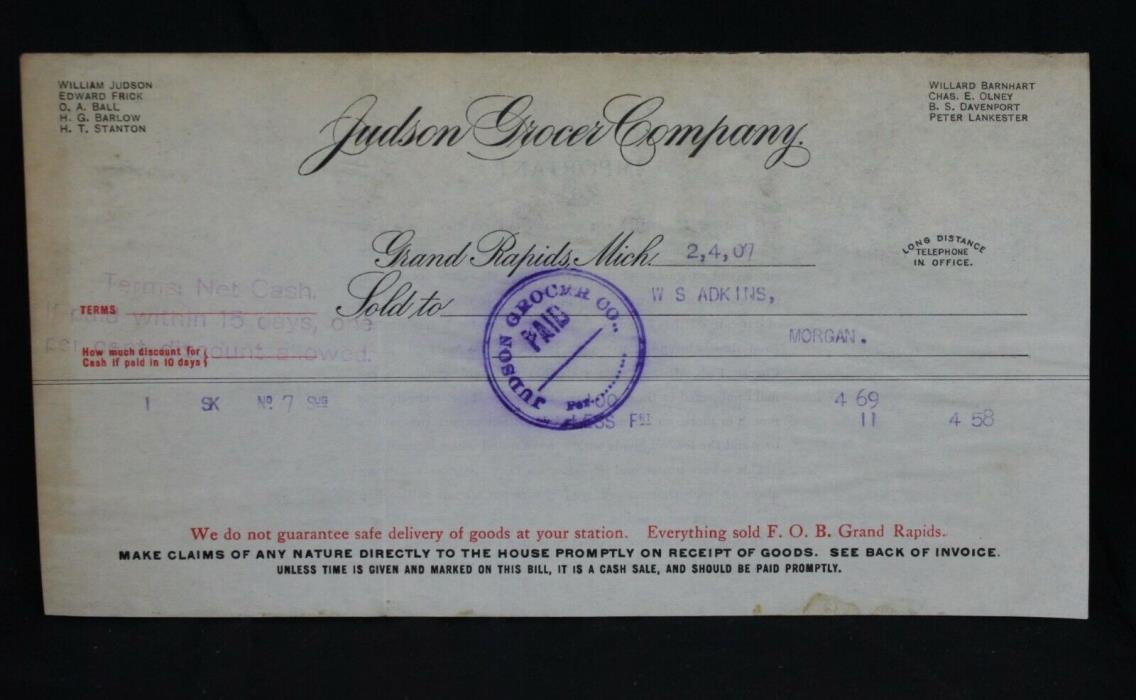 WILLIAM JUDSON
EDWARD FRICK
O. A. BALL
H. G. BARLOW
H. T. STANTON
WILLARD BARNHART
CHAS. E. OLNEY
B. S. DAVENPORT
PETER LANKESTER
Judson Grocer Company.
Grand Rapids, Mich. 2,4,07
LONG DISTANCE
TELEPHONE
IN OFFICE.
Sold to W S ADKINS,
MORGAN.
TERMS
Terms: Net Cash.
If paid within 15 days, one
per cent discount allowed.
How much discount for
Cash if paid in 10 days
JUDSON GROCER CO.,
PAID
Per
1 SK No 7 SUG 4 69
LESS FRT 11 4 58
We do not guarantee safe delivery of goods at your station. Everything sold F. O. B. Grand Rapids.
MAKE CLAIMS OF ANY NATURE DIRECTLY TO THE HOUSE PROMPTLY ON RECEIPT OF GOODS. SEE BACK OF INVOICE.
UNLESS TIME IS GIVEN AND MARKED ON THIS BILL, IT IS A CASH SALE, AND SHOULD BE PAID PROMPTLY.